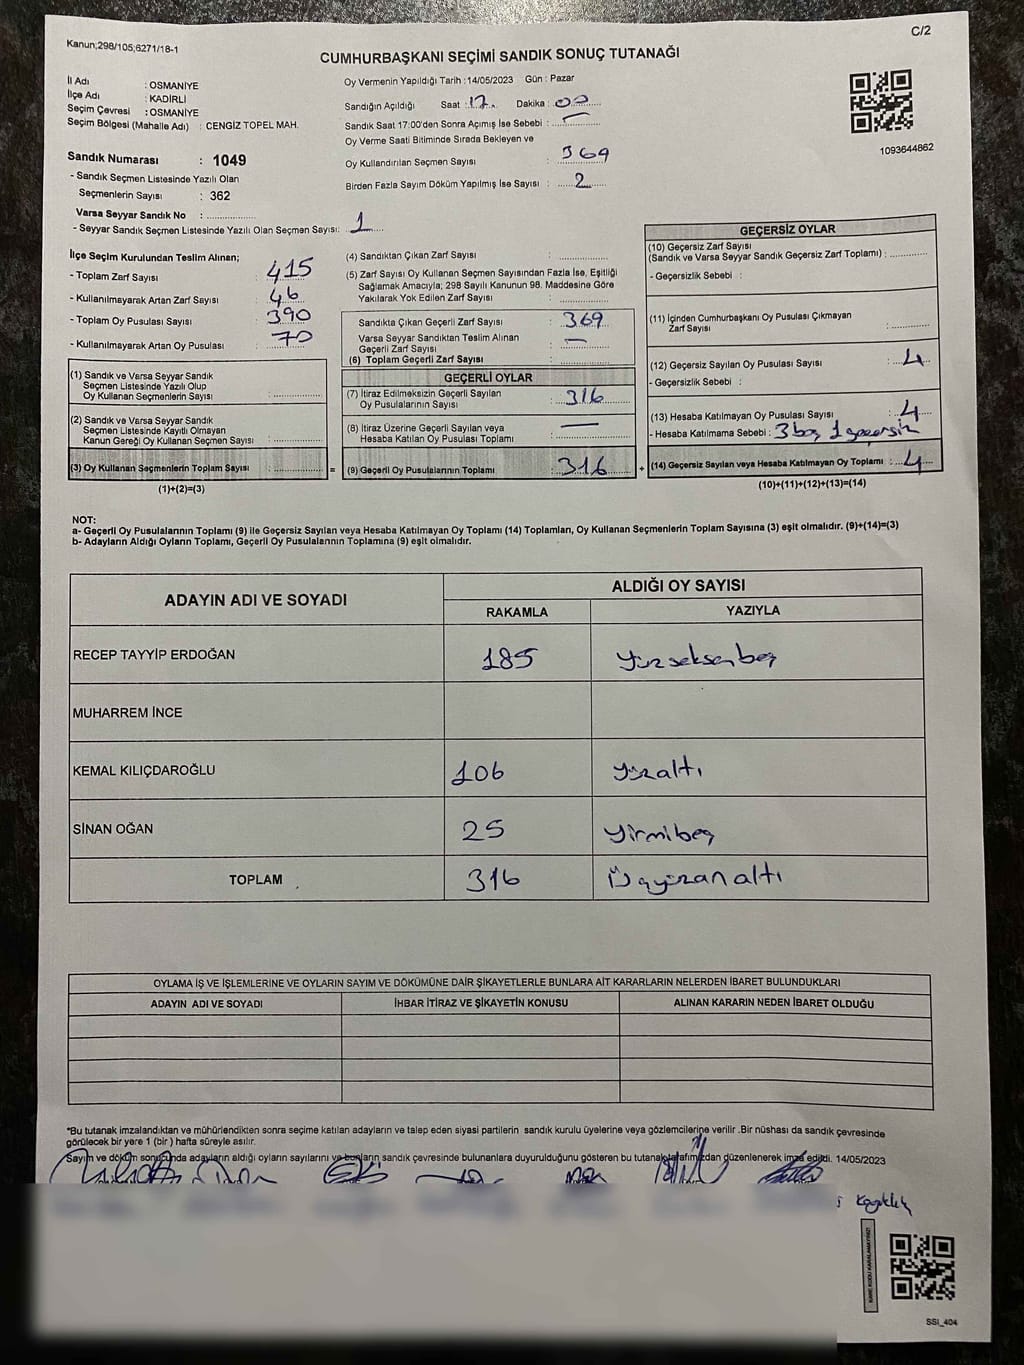 Kanun;298/105;6271/18-1
C/2
CUMHURBAŞKANI SEÇİMİ SANDIK SONUÇ TUTANAĞI
İl Adı : OSMANİYE
İlçe Adı : KADİRLİ
Seçim Çevresi : OSMANİYE
Seçim Bölgesi (Mahalle Adı) : CENGİZ TOPEL MAH.
Sandık Numarası : 1049
- Sandık Seçmen Listesinde Yazılı Olan
Seçmenlerin Sayısı : 362
Varsa Seyyar Sandık No : ..............
- Seyyar Sandık Seçmen Listesinde Yazılı Olan Seçmen Sayısı: 1
Oy Vermenin Yapıldığı Tarih :14/05/2023 Gün : Pazar
Sandığın Açıldığı Saat : 17. Dakika : 00
Sandık Saat 17:00'den Sonra Açımış İse Sebebi : —
Oy Verme Saati Bitiminde Sırada Bekleyen ve
Oy Kullandırılan Seçmen Sayısı : 369
Birden Fazla Sayım Döküm Yapılmış İse Sayısı : 2
1093644862
İlçe Seçim Kurulundan Teslim Alınan;
- Toplam Zarf Sayısı : 415
- Kullanılmayarak Artan Zarf Sayısı : 46
- Toplam Oy Pusulası Sayısı : 390
- Kullanılmayarak Artan Oy Pusulası : 70
(1) Sandık ve Varsa Seyyar Sandık
Seçmen Listesinde Yazılı Olup
Oy Kullanan Seçmenlerin Sayısı : ..............
(2) Sandık ve Varsa Seyyar Sandık
Seçmen Listesinde Kayıtlı Olmayan
Kanun Gereği Oy Kullanan Seçmen Sayısı : ..............
(3) Oy Kullanan Seçmenlerin Toplam Sayısı : .............. =
(1)+(2)=(3)
(4) Sandıktan Çıkan Zarf Sayısı : ..............
(5) Zarf Sayısı Oy Kullanan Seçmen Sayısından Fazla İse, Eşitliği
Sağlamak Amacıyla; 298 Sayılı Kanunun 98. Maddesine Göre
Yakılarak Yok Edilen Zarf Sayısı : ..............
Sandıkta Çıkan Geçerli Zarf Sayısı : 369
Varsa Seyyar Sandıktan Teslim Alınan
Geçerli Zarf Sayısı : —
(6) Toplam Geçerli Zarf Sayısı : ..............
GEÇERLİ OYLAR
(7) İtiraz Edilmeksizin Geçerli Sayılan
Oy Pusulalarının Sayısı : 316
(8) İtiraz Üzerine Geçerli Sayılan veya
Hesaba Katılan Oy Pusulası Toplamı : —
(9) Geçerli Oy Pusulalarının Toplamı : 316 +
GEÇERSİZ OYLAR
(10) Geçersiz Zarf Sayısı
(Sandık ve Varsa Seyyar Sandık Geçersiz Zarf Toplamı) : ..............
- Geçersizlik Sebebi :
(11) İçinden Cumhurbaşkanı Oy Pusulası Çıkmayan
Zarf Sayısı : ..............
(12) Geçersiz Sayılan Oy Pusulası Sayısı : 4
- Geçersizlik Sebebi :
(13) Hesaba Katılmayan Oy Pusulası Sayısı : 4
- Hesaba Katılmama Sebebi : 3 boş 1 geçersiz
(14) Geçersiz Sayılan veya Hesaba Katılmayan Oy Toplamı : 4
(10)+(11)+(12)+(13)=(14)
NOT:
a- Geçerli Oy Pusulalarının Toplamı (9) ile Geçersiz Sayılan veya Hesaba Katılmayan Oy Toplamı (14) Toplamları, Oy Kullanan Seçmenlerin Toplam Sayısına (3) eşit olmalıdır. (9)+(14)=(3)
b- Adayların Aldığı Oyların Toplamı, Geçerli Oy Pusulalarının Toplamına (9) eşit olmalıdır.
ADAYIN ADI VE SOYADI ALDIĞI OY SAYISI
RAKAMLA YAZIYLA
RECEP TAYYİP ERDOĞAN 185 Yüzseksenbeş
MUHARREM İNCE
KEMAL KILIÇDAROĞLU 106 Yüzaltı
SİNAN OĞAN 25 Yirmibeş
TOPLAM 316 Üçyüzonaltı
OYLAMA İŞ VE İŞLEMLERİNE VE OYLARIN SAYIM VE DÖKÜMÜNE DAİR ŞİKAYETLERLE BUNLARA AİT KARARLARIN NELERDEN İBARET BULUNDUKLARI
ADAYIN ADI VE SOYADI İHBAR İTİRAZ VE ŞİKAYETİN KONUSU ALINAN KARARIN NEDEN İBARET OLDUĞU
*Bu tutanak imzalandıktan ve mühürlendikten sonra seçime katılan adayların ve talep eden siyasi partilerin sandık kurulu üyelerine veya gözlemcilerine verilir .Bir nüshası da sandık çevresinde
görülecek bir yere 1 (bir ) hafta süreyle asılır.
Sayım ve döküm sonunda adayların aldığı oyların sayılarını ve bunların sandık çevresinde bulunanlara duyurulduğunu gösteren bu tutanak tarafımızdan düzenlenerek imza edildi. 14/05/2023
SSI_404